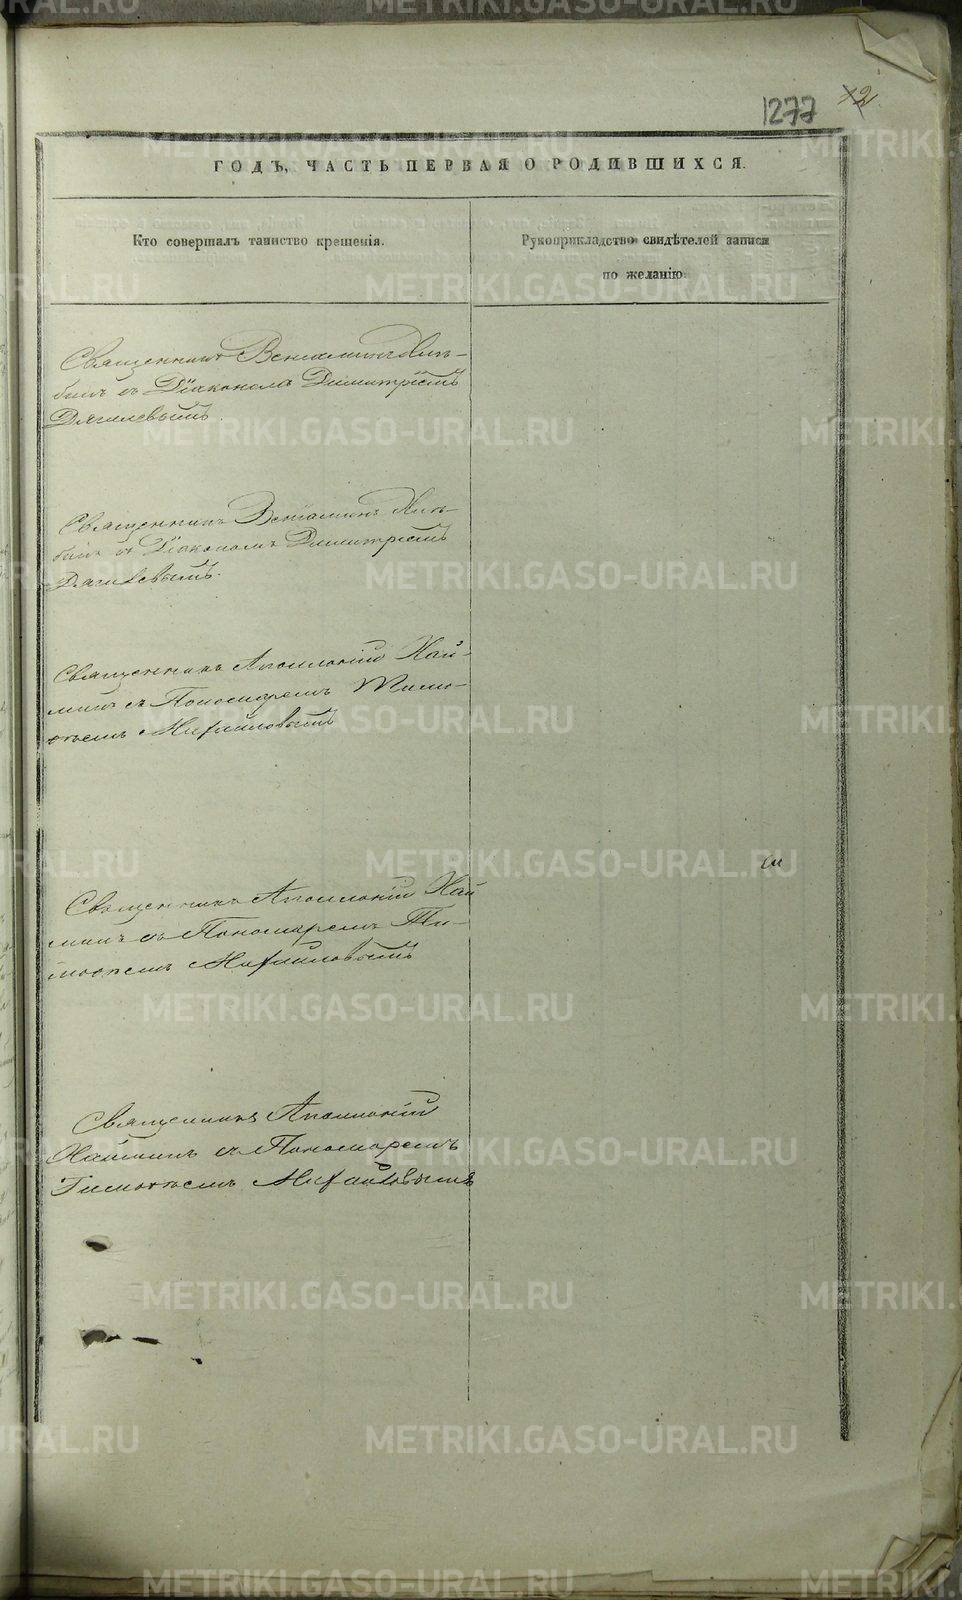 1277
2
ГОДЪ, ЧАСТЬ ПЕРВАЯ О РОДИВШИХСЯ.
Кто совершалъ таинство крещенія.
Рукоприкладство свидѣтелей записи
по желанію.
Священникъ Веніаминъ
съ Діакономъ Димитріемъ
Дягилевымъ.
Священникъ Веніаминъ
съ Діакономъ Димитріемъ
Дягилевымъ.
Священникъ Аполлоній Хай-
минъ съ Пономаремъ Тимо-
ѳеемъ Михайловымъ
Священникъ Аполлоній Хай
минъ съ Пономаремъ Ти-
моѳеемъ Михайловымъ
Священникъ Аполлоній
Хайминъ съ Пономаремъ
Тимоѳеемъ Михайловымъ
METRIKI.GASO-URAL.RU